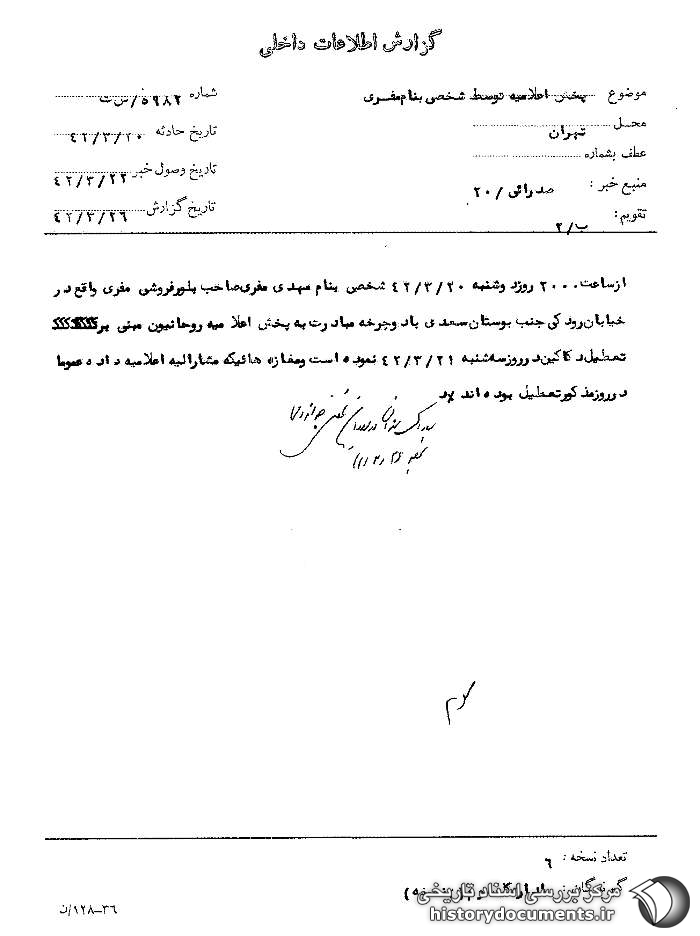 گزارش اطلاعات داخلی
موضوع پخش اعلامیه توسط شخصی بنام مفری
شماره ۵۹۸۲/س ت
محل تهران
تاریخ حادثه ۴۲/۳/۲۰
عطف بشماره
تاریخ وصول خبر ۴۲/۳/۲۲
منبع خبر : صدرائی /۲۰
تاریخ گزارش ۴۲/۳/۲۶
تقویم: ب/۲
ازساعت ۲۰۰۰ روزد وشنبه ۴۲/۳/۲۰ شخصی بنام مهدی مفری صاحب بلورفروشی مفری واقع در
خیابان رودکی جنب بوستان سعدی بادوچرخه مبادرت به پخش اعلا میه روحانیون مبنی بر
تعطیل دکاکین درروزسه شنبه ۴۲/۳/۲۱ نموده است ومغازه هائیکه مشارالیه اعلامیه داده عموما
درروزمذکورتعطیل بوده اند
تعداد نسخه : ۶
گیرندگان :
۳۶–۱۲۸/ن
مرکز بررسی اسناد تاریخی
historydocuments.ir